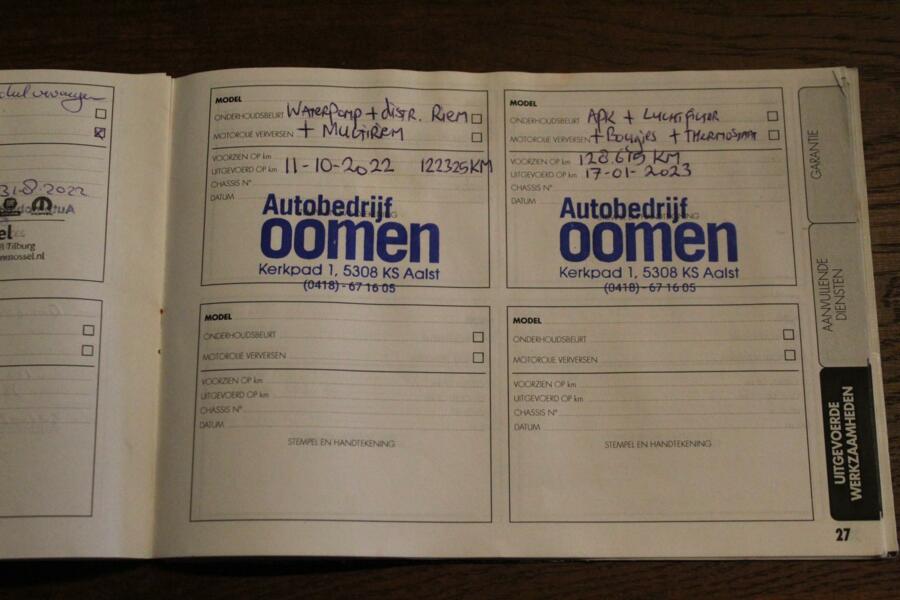 31-8-2022
Tilburg
MODEL
ONDERHOUDSBEURT WATERPOMP + distr. RIEM
MOTOROLIE VERVERSEN + MULTIRIEM
VOORZIEN OP km
UITGEVOERD OP km 11-10-2022 122325 KM
CHASSIS N°
DATUM
Autobedrijf
oomen
Kerkpad 1, 5308 KS Aalst
(0418) - 67 16 05
MODEL
ONDERHOUDSBEURT APK + LUCHTFILTER
MOTOROLIE VERVERSEN + Bougies + THERMOSTAAT
VOORZIEN OP km 128.675 KM
UITGEVOERD OP km 17-01-2023
CHASSIS N°
DATUM
Autobedrijf
oomen
Kerkpad 1, 5308 KS Aalst
(0418) - 67 16 05
MODEL
ONDERHOUDSBEURT
MOTOROLIE VERVERSEN
VOORZIEN OP km
UITGEVOERD OP km
CHASSIS N°
DATUM
STEMPEL EN HANDTEKENING
MODEL
ONDERHOUDSBEURT
MOTOROLIE VERVERSEN
VOORZIEN OP km
UITGEVOERD OP km
CHASSIS N°
DATUM
STEMPEL EN HANDTEKENING
GARANTIE
AANVULLENDE
DIENSTEN
UITGEVOERDE
WERKZAAMHEDEN
27